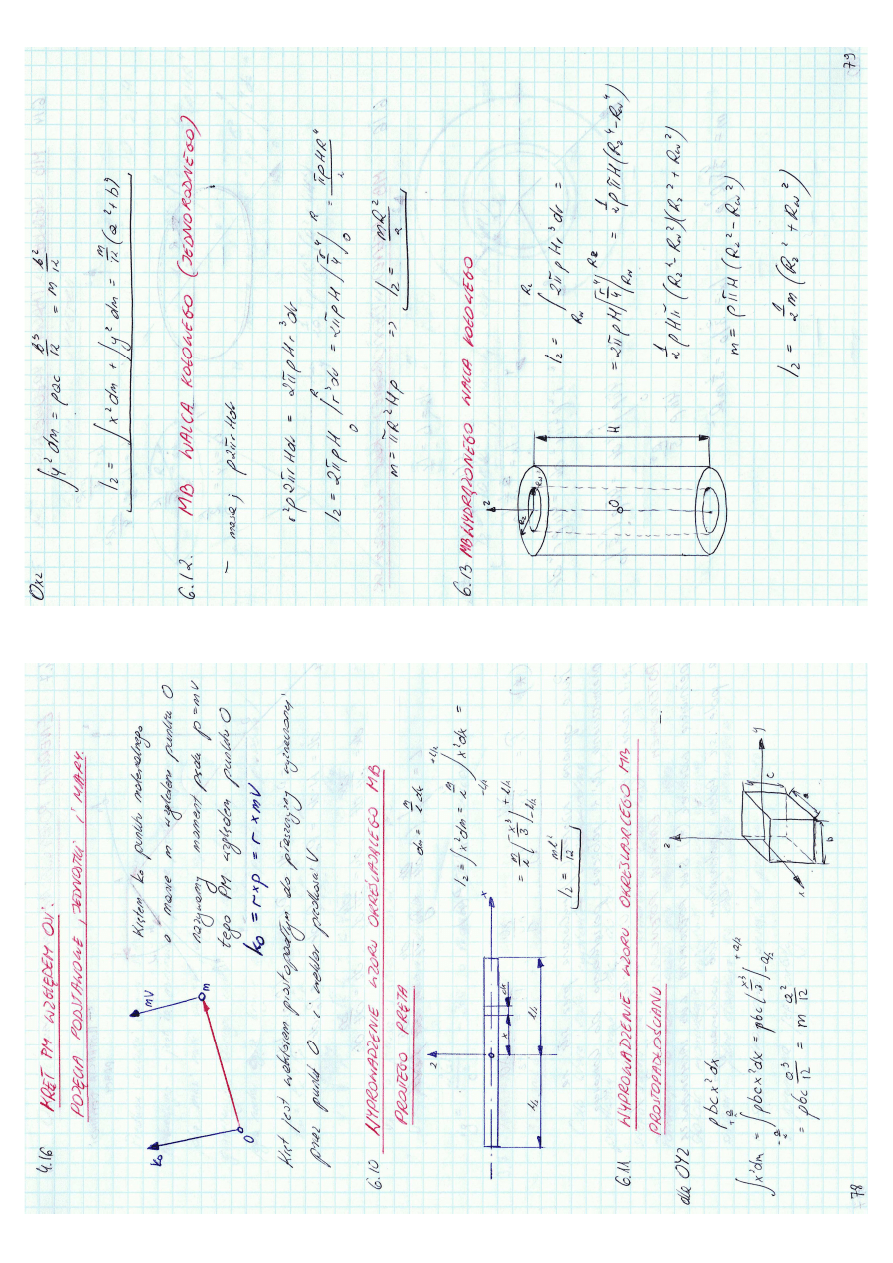 4.16 KRĘT PM WZGLĘDEM OSI.
POJĘCIA PODSTAWOWE, JEDNOSTKI I MIARY.
ko
mV
m
O
Krętem ko punktu materialnego
o masie m względem punktu O
nazywamy moment pędu p=mV
tego PM względem punktu O
ko = r×p = r×mV
Kręt jest wektorem prostopadłym do płaszczyzny wyznaczonej
przez punkt O i wektor prędkości V
6.10 WYPROWADZENIE WZORU OKREŚLAJĄCEGO MB
PROSTEGO PRĘTA
z
x
x
dx
L/2
L/2
dm = m/L dx
Iz = ∫x²dm = m/L ∫ -L/2 +L/2 x²dx =
= m/L [x³/3] +L/2 -L/2
Iz = mL²/12
6.11 WYPROWADZENIE WZORU OKREŚLAJĄCEGO MB
PROSTOPADŁOŚCIANU
dla OYZ
ρbcx²dx
∫x²dm = ∫ -a/2 +a/2 ρbcx²dx = ρbc [x³/3] +a/2 -a/2
= ρbc a³/12 = m a²/12
z
y
x
c
a
b
78
Oxz
∫y²dm = ρac b³/12 = m b²/12
Iz = ∫x²dm + ∫y²dm = m/12 (a²+b²)
6.12. MB WALCA KOŁOWEGO (JEDNORODNEGO)
– masa j ρ2πrHdr
r²ρ2πrHdr = 2πρHr³dr
Iz = 2πρH ∫ 0 R r³dr = 2πρH [r⁴/4] R 0 = πρHR⁴/2
m = πR²Hρ => Iz = mR²/2
6.13 MB WYDRĄŻONEGO WALCA KOŁOWEGO
z
Rz
Rw
O
H
Iz = ∫ Rw Rz 2πρHr³dr =
= 2πρH [r⁴/4] Rz Rw = 1/2 ρπH(Rz⁴-Rw⁴)
1/2 ρHπ (Rz²-Rw²)(Rz²+Rw²)
m = ρπH (Rz²-Rw²)
Iz = 1/2 m (Rz²+Rw²)
79